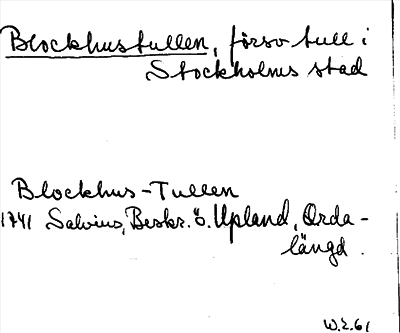 Blockhustullen, försv tull i
Stockholms stad
Blockhus-Tullen
1741 Salvius, Beskr. ö. Upland, Orda-
längd.
W.E.61